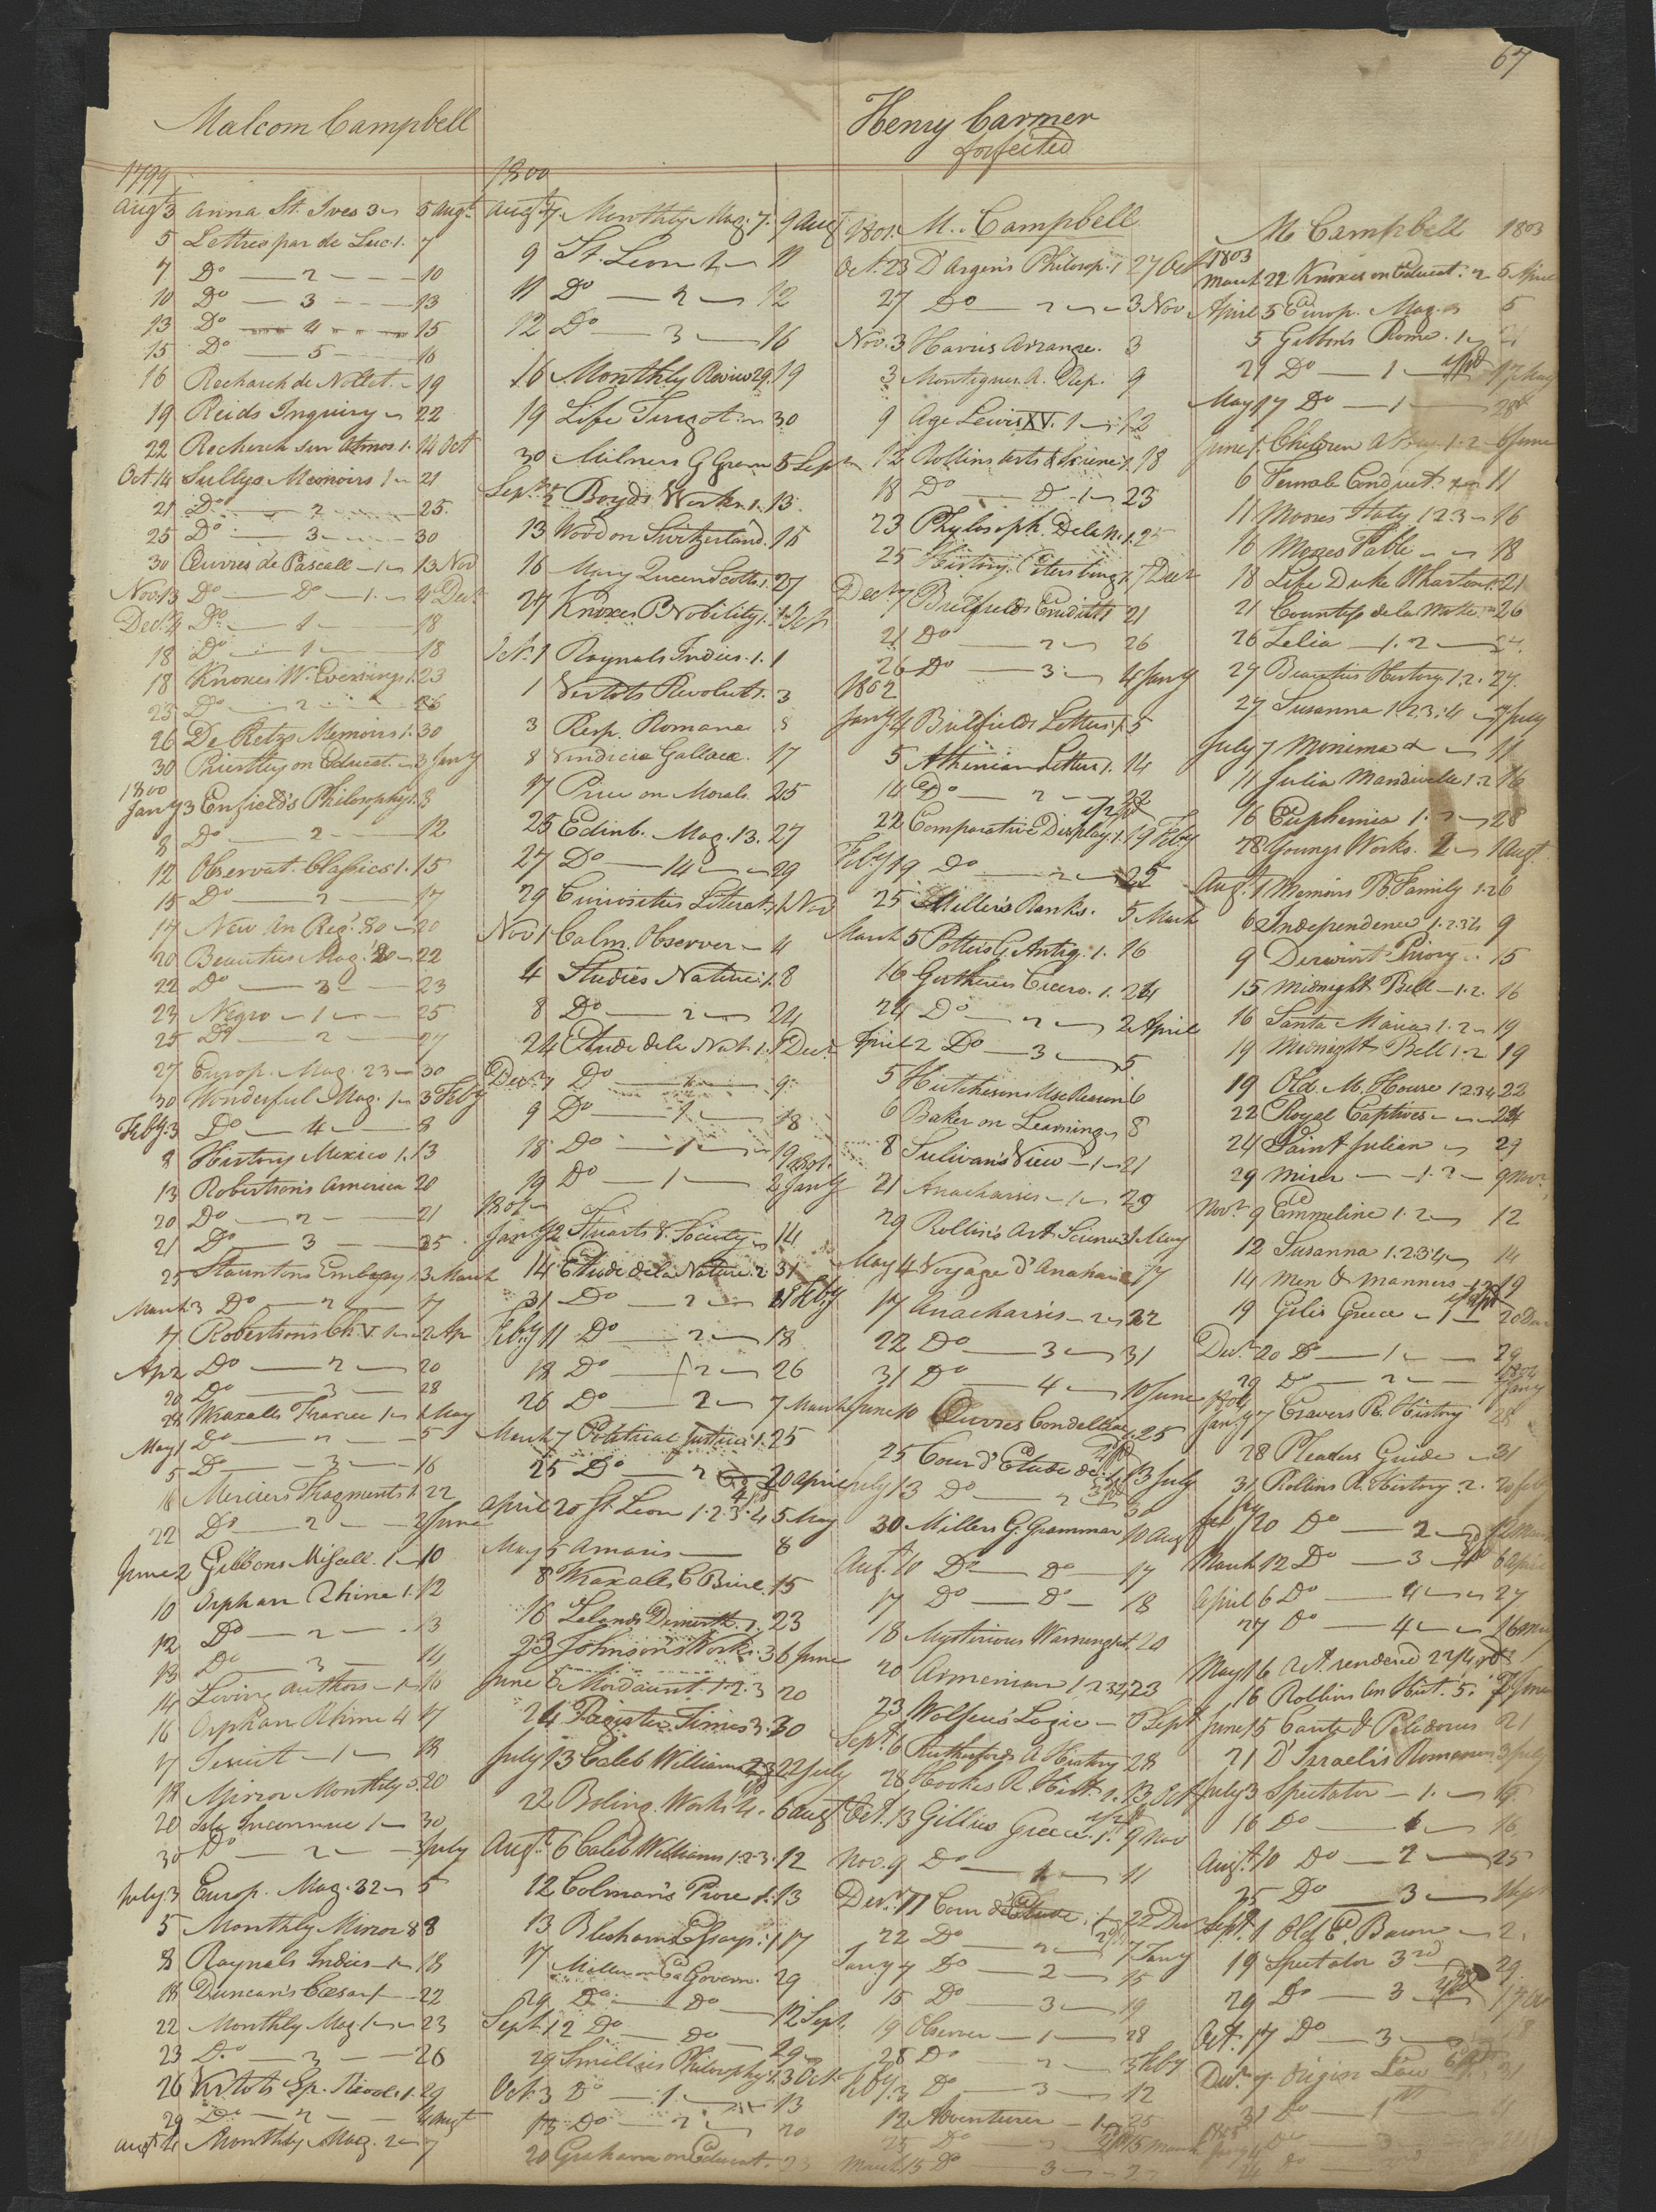 67
Malcom Campbell
1799
Augt 3 Anna St. Ives 3 5 Augt
5 Lettres par de Luc 1. 7
7 Do — 2 — 10
10 Do — 3 — 13
13 Do — 4 — 15
15 Do — 5 — 16
16 Recharch de Nollet. 19
19 Reids Inquiry 22
22 Recherch sur Atmos 1. 14 Oct
Oct. 14 Sullys Memoirs 1 21
21 Do — 2 — 25.
25 Do — 3 — 30
30 Œuvres de Pascall — 1 13 Nov
Nov. 13 Do — Do — 1. 4 Decr
Dec. 4 Do — 1 — 18
18 Do — 1 — 18
18 Knoxes W. Evenings 1. 23
23 Do — 2 — 26
26 De Retzs Memoirs 1. 30
30 Priestley on Educat. 3 Jany
1800
Jany 3 Enfield's Philosophy 1. 8
8 Do — 2 — 12
12 Observat. Classics 1. 15
15 Do — 2 — 17
17 New An Reg. 80 — 20
20 Beauties Mag. 22
22 Do — 3 — 23
23 Negro — 1 — 25
25 Do — 2 — 27
27 Europ. Mag. 23 — 30
30 Wonderful Mag. 1 3 Feby
Feby. 3 Do — 4 — 8
8 History Mexico 1. 13
13 Robertson's America 20
20 Do — 2 — 21
21 Do — 3 — 25
25 Stauntons Embassy 1. 3 March
March 3 Do — 2 — 7
7 Robertsons Ch. V. 1 — 2 Ap
Ap 2 Do — 2 — 20
20 Do — 3 — 28
28 Wraxalls France 1 1 May
May 1 Do — 2 — 5
5 Do — 3 — 16
16 Merciers Fragments 1. 22
22 Do — 2 — 2 June
June 2 Gibbons Miscell. 1 10
10 Orphan Rhine 1. 12
12 Do — 2 — 13
13 Do — 3 — 14
14 Living Authors — 1 16
16 Orphan Rhine 4 17
17 Jesuit — 1 — 18
18 Mirror Monthly 20
20 Isle Inconnue 1 — 30
30 Do — 2 — 3 July
July. 3 Europ. Mag. 32 5
5 Monthly Mirror 8 8
8 Raynals Indies — 1 18
18 Duncan's Cæsar 1 — 22
22 Monthly Mag 1 — 23
23 Do — 3 — 26
26 Vertots Sp. Revol. 1. 29
29 Do — 2 — 4 Augt
Augt 4 Monthly Mag. 2 7
1800
Augt 7 Monthly Mag. 7. 9 Aug
9 St. Leon 2 11
11 Do — 2 12
12 Do — 3 — 16
16 Monthly Review 29. 19
19 Life Turgot 30
30 Milners G Gram 5 Sept
Sept. 5 Boyds Works 1. 13.
13 Wood on Switzerland. 16
16 Mary Queen Scotts 1. 27
27 Knoxes P. Nobility 1.
Oct. 1 Raynals Indies 1. 1
1 Vertots Revolut 1. 3
3 Resp. Romana 8
8 Vindicia Gallaca. 17
17 Price on Morals. 25
25 Edinb. Mag. 13. 27
27 Do — 14 — 29
29 Curiosities Literat. 1 Nov
Nov 1 Calm Observer — 4
4 Studies Nature 1. 8
8 Do — 2 — 24
24 Etude de la Nat. 1. Decr
Decr 7 Do — 9
9 Do — 1 — 18
18 Do — 1 — 19
1801.
19 Do — 1 — 2 Jany
1801
Jany 2 Stuarts S. Society 14
14 Etude de la Nature 2 31
31 Do — 2 — 11 Feby
Feby 11 Do — 2 — 18
18 Do — 2 — 26
26 Do — 2 — 7 March
March 7 Political Justice 1. 25
25 Do — 2 20 April
April 20 St. Leon 1.2.3.4 5 May
May 5 Amaris — 8
8 Wraxalls C Bine 15
16 Lelands Demosth. 1. 23
23 Johnsons Works. 3 6 June
June 6 Mordaunt. 1.2.3 20
24 Register Times 3. 30
July 13 Caleb Williams 2 3 22 July
22 Boling. Works 4. 6 Augt
Augt. 6 Caleb Williams 1.2.3. 12
12 Colman's Prose 1. 13
13 Blesham Essays 1 17
17 Miller on E Govern. 29
29 Do — Do — 12 Sept
Sept. 12 Do — Do — 29
29 Smillies Philosophy 1. 3 Oct
Oct. 3 Do — 1 — 13
13 Do — 2 — 20
20 Graham on Educat. 23
Henry Carmer
forfeited
1801. M. Campbell
Oct. 23 D'Argen's Philosop. 1 27 Oct
27 Do — 2 — 3 Nov
Nov. 3 Harris Arrange. 3
3 Montigues A. Rep. 9
9 Age Lewis XV. 1 — 12
12 Rollins Arts & Science 1. 18
18 Do — Do 1 — 23
23 Phylosoph. Dela N. 1. 25
25 History Petersburg 1. 7 Decr
Decr 7 Bielfields Erudit 1 21
21 Do — 2 — 26
26 Do — 3 — 4 Jany
1802
Jany 4 Bielfields Letters 1. 5
5 Athenian Letters 1. 14
14 Do — 2 — 22
22 Comparative Display. 1. 19 Feby
Feby 19 Do — 2 — 25
25 Miller's Ranks. 5 March
March 5 Potters G. Antiq. 1. 16
16 Guthries Cicero. 1. 24
24 Do — 2 — 2 April
April 2 Do — 3 — 5
5 Hutchesons Use Reason 6
6 Baker on Learning 8
8 Sulivan's View — 1 — 21
21 Anacharsis — 1 29
29 Rollin's Art Science 3 May
May 4 Voyage d'Anaharsi 17
17 Anacharsis — 2 22
22 Do — 3 — 31
31 Do — 4 — 10 June
June 10 Œuvres Condillac 25
25 Cour d'Etude de 1. 13 July
July 13 Do — 2 30
30 Millers G. Grammar 10 Aug
Aug. 10 Do — Do — 17
17 Do — Do — 18
18 Mysterious Warnings 20
20 Armenian 1 2 3 4 23
23 Wolfius's Logic — 6 Sept
Sept. 6 Rutherfords A History 28
28 Hookes R. Hist. 1. 13 Oct
Oct. 13 Gillies Greece. 1. 9 Nov
Nov. 9 Do — 1 — 11
Decr 11 Cour d'Etude 1 22 Dec
22 Do — 2 — 7 Jany
Jany 7 Do — 2 — 15
15 Do — 3 — 19
19 Observer — 1 — 28
28 Do — 2 — 3 Feby
Feby. 3 Do — 3 — 12
12 Adventurer — 1 25
25 Do — 15 March
March 15 Do — 3
M Campbell 1803
1803
March 22 Knoxes on Educat. 2 5 April
April 5 Europ. Mag. 5
5 Gibbon's Rome. 1 21
21 Do — 1 17 May
May 17 Do — 1 — 28
June 1. Children Abbey 1.2 6 June
6 Female Conduct 11
11 Moores Italy 1 2 3 — 16
16 Moores Fable — 18
18 Life Duke Wharton 21
21 Countess de la Motte 26
26 Zelia — 1.2 —
27 Beauties History 1.2. 27.
27 Susanna 1.2.3.4 7 July
July 7 Monima 11
11 Julia Mandiville 1.2 16
16 Euphemia 1. 2 — 28
28 Youngs Works. 2 1 Augt
Augt. 1 Memoirs B. Family 1.2 6
6 Independence 1.2.3.4 9
9 Derwint Priory 15
15 Midnight Bell — 1.2. 16
16 Santa Maria 1.2 19
19 Midnight Bell 1.2 19
19 Old M. House 1 2 3 4 22
22 Royal Captives — 24
24 Saint Julian 29
29 Miser — 1.2 — 9 Nov.
Novr 9 Emmeline 1.2 12
12 Susanna 1.2.3.4 14
14 Men & Manners 19
19 Gilis Greece — 1 20 Dec
Decr 20 Do — 1 — 29
1804
29 Do — 2 — 7 Jany
1804
Jany 7 Cravers R. History 28
28 Pleaders Guide — 31
31 Rollins R. History. 2. 20 Feby
Feby 20 Do — 2 — 12 March
March 12 Do — 3 6 April
April 6 Do — 4 — 27
27 Do — 4 — 16 May
May 16 Act. rendered 22/4
16 Rollins An Hist. 5. June
June 15 Cante & Pelidorus 21
21 D'Israelis Romances 3 July
July 3 Spectator — 1. — 16
16 Do — 1 — 16
Augt. 10 Do — 2 — 25
25 Do — 3 — 1 Sept
Sept. 1 Old E. Baron — 2.
19 Spectator 3rd — 29
29 Do — 3 17 Oct
Oct. 17 Do — 3
Decr 7 Origin Law 31
31 Do — 1
1805
Jany